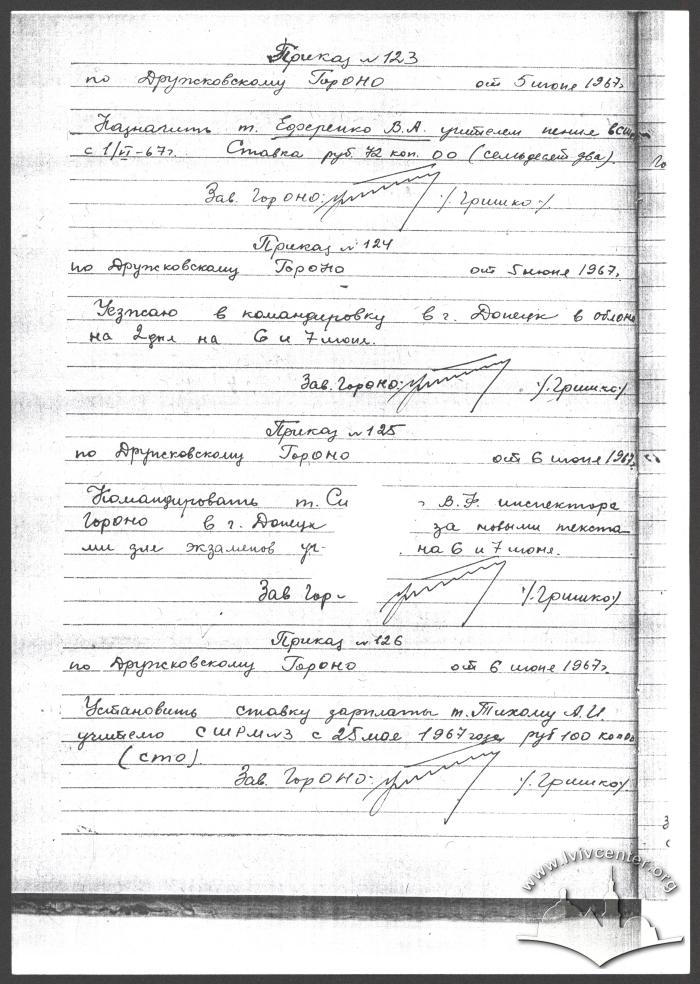 Приказ №123
по Дружковскому ГорОНО от 5 июня 1967г.
Назначить т. Еференко В.А. учителем пения
с 1/VI-67г. Ставка руб. 72 коп. 00 (семьдесят два).
Зав. ГорОНО: /.Гришко./
Приказ №124
по Дружковскому ГорОНО от 5 июня 1967г.
Уезжаю в командировку в г. Донецк в облоно
на 2 дня на 6 и 7 июня.
Зав. ГорОНО: /.Гришко/
Приказ №125
по Дружковскому ГорОНО от 6 июня 1967г.
Командировать т. Си В.Ф. инспектора
ГорОНО в г. Донецк за новыми текста
ми для экзаменов на 6 и 7 июня.
Зав Гор /.Гришко/
Приказ №126
по Дружковскому ГорОНО от 6 июня 1967г.
Установить ставку зарплаты т. Тихому А.И.
учителю СШРМ№3 с 25 мая 1967 года руб 100 коп 00
(сто).
Зав. ГорОНО: /.Гришко/
www.lvivcenter.org